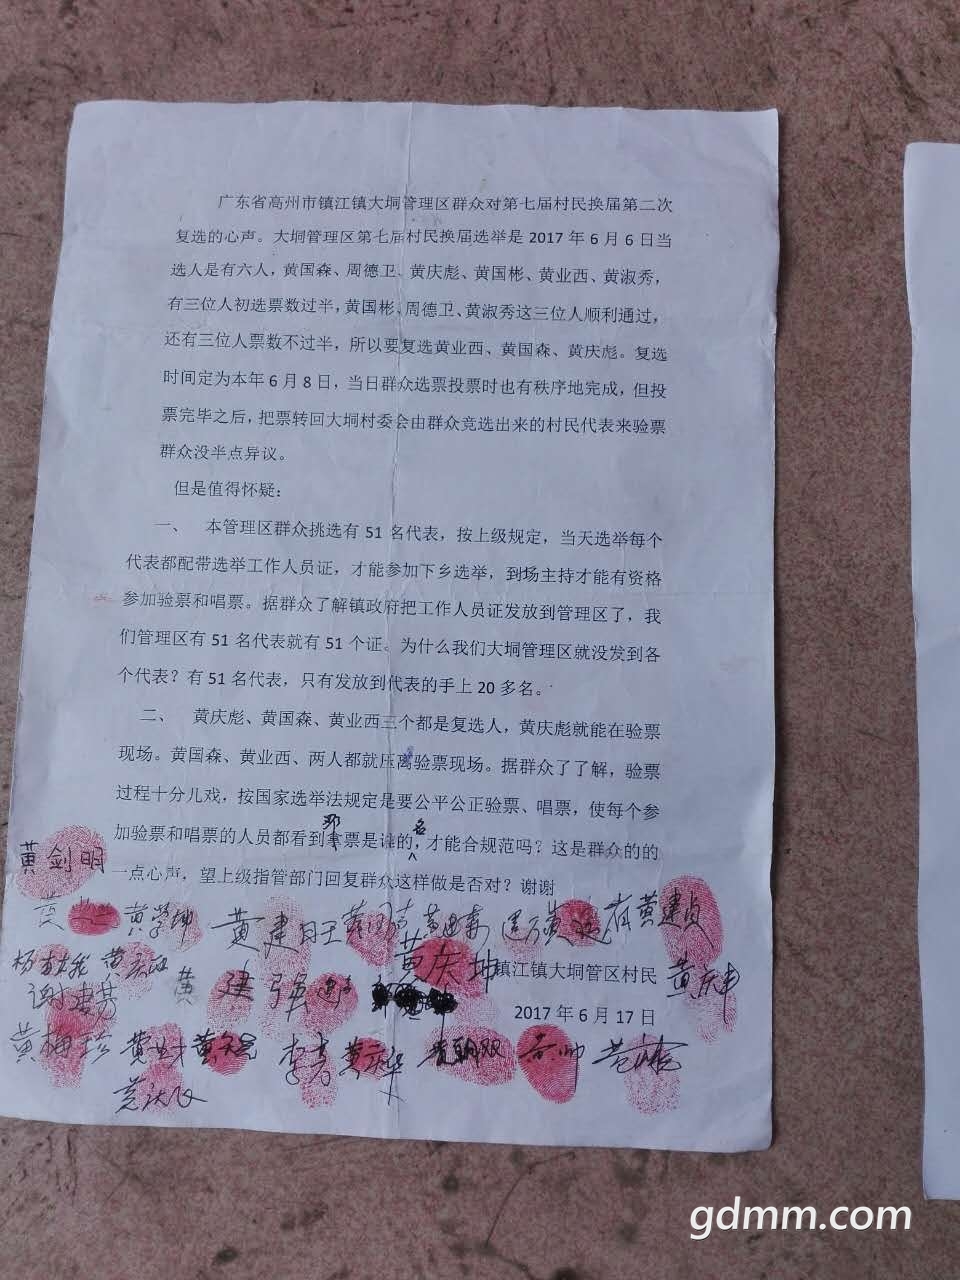 广东省高州市镇江镇大垌管理区群众对第七届村民换届第二次
复选的心声。大垌管理区第七届村民换届选举是 2017 年 6 月 6 日当
选人是有六人，黄国森、周德卫、黄庆彪、黄国彬、黄业西、黄淑秀，
有三位人初选票数过半，黄国彬、周德卫、黄淑秀这三位人顺利通过，
还有三位人票数不过半，所以要复选黄业西、黄国森、黄庆彪。复选
时间定为本年 6 月 8 日，当日群众选票投票时也有秩序地完成，但投
票完毕之后，把票转回大垌村委会由群众竞选出来的村民代表来验票
群众没半点异议。
但是值得怀疑：
一、 本管理区群众挑选有 51 名代表，按上级规定，当天选举每个
代表都配带选举工作人员证，才能参加下乡选举，到场主持才能有资格
参加验票和唱票。据群众了解镇政府把工作人员证发放到管理区了，我
们管理区有 51 名代表就有 51 个证。为什么我们大垌管理区就没发到各
个代表？有 51 名代表，只有发放到代表的手上 20 多名。
二、 黄庆彪、黄国森、黄业西三个都是复选人，黄庆彪就能在验票
现场。黄国森、黄业西、两人都就压离验票现场。据群众了了解，验票
过程十分儿戏，按国家选举法规定是要公平公正验票、唱票，使每个参
加验票和唱票的人员都看到票是谁的名，才能合规范吗？这是群众的的
一点心声，望上级指管部门回复群众这样做是否对？谢谢
黄剑明
黄学坤 黄建旺 黄建贞
黄庆坤
镇江镇大垌管区村民
黄建强
2017 年 6 月 17 日
黄梅珍
gdmm.com